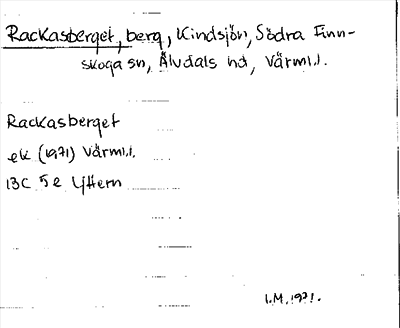 Rackasberget, berg, Kindsjön, Södra Finn-
skoga sn, Älvdals hd, Värml.l.
Rackasberget
ek (1971) Värml.l.
13C 5e Yttern
I.M. 1971.